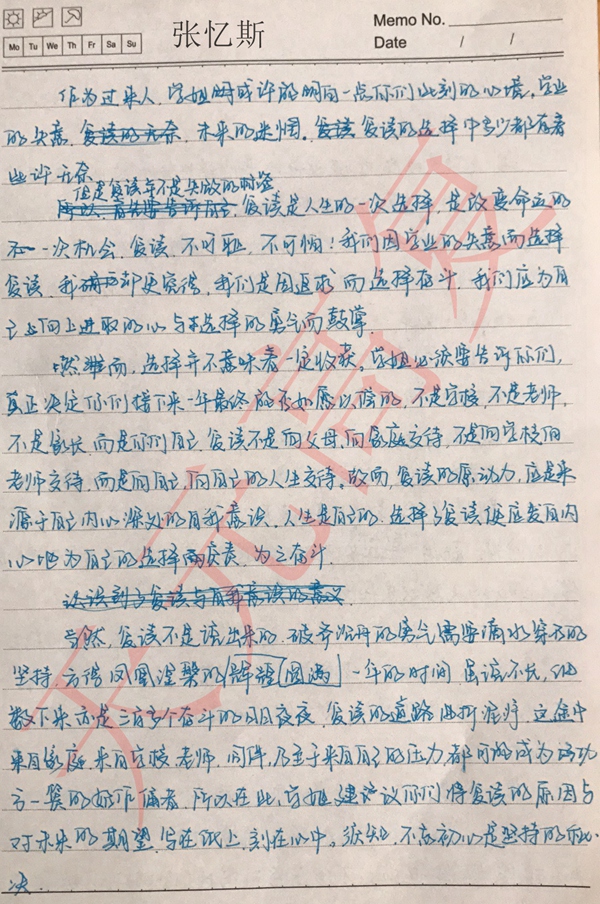 Mo Tu We Th Fr Sa Su
张忆斯
Memo No.
Date / /
作为过来人，学姐明或许能明白一点你们此刻的心境，学业
的失意，复读的无奈，未来的迷惘。复读复读的选择中多少都有着
些许无奈
但是复读并不是失败的时候
所以，首先要告诉自己，复读是人生的一次选择，是改变命运的
一次机会，复读，不可耻，不可怕！我们因学业的失意而选择
复读，我却更觉得，我们是因追求而选择奋斗，我们应为自
己的向上进取的心与选择的勇气而鼓掌
然而，选择并不意味着一定收获。学姐必须要告诉你们，
真正决定你们接下来一年最终能否如愿以偿的，不是学校，不是老师，
不是家长，而是你们自己，复读不是向父母，向家庭交待，不是向学校向
老师交待，而是向自己，向自己的人生交待。故而，复读的原动力，应是来
源于自己内心深处的自我意识，人生是自己的，选择了复读便应发自内
心地为自己的选择而负责，为之奋斗。
认识到了复读与自我意识的意义，
当然，复读不是读出来的，破釜沉舟的勇气需要滴水穿石的
坚持，方得凤凰涅槃的辉煌圆满 一年的时间，虽说不长，但
数下来，亦是三百多个奋斗的日日夜夜，复读的道路曲折泥泞，这途中
来自家庭，来自学校，老师，同伴，乃至于来自自己的压力，都可能成为功
亏一篑的始作俑者，所以在此，学姐建议你们将复读的原因与
对未来的期望，写在纸上，刻在心中，须知，不忘初心是坚持的秘
诀
天元高复